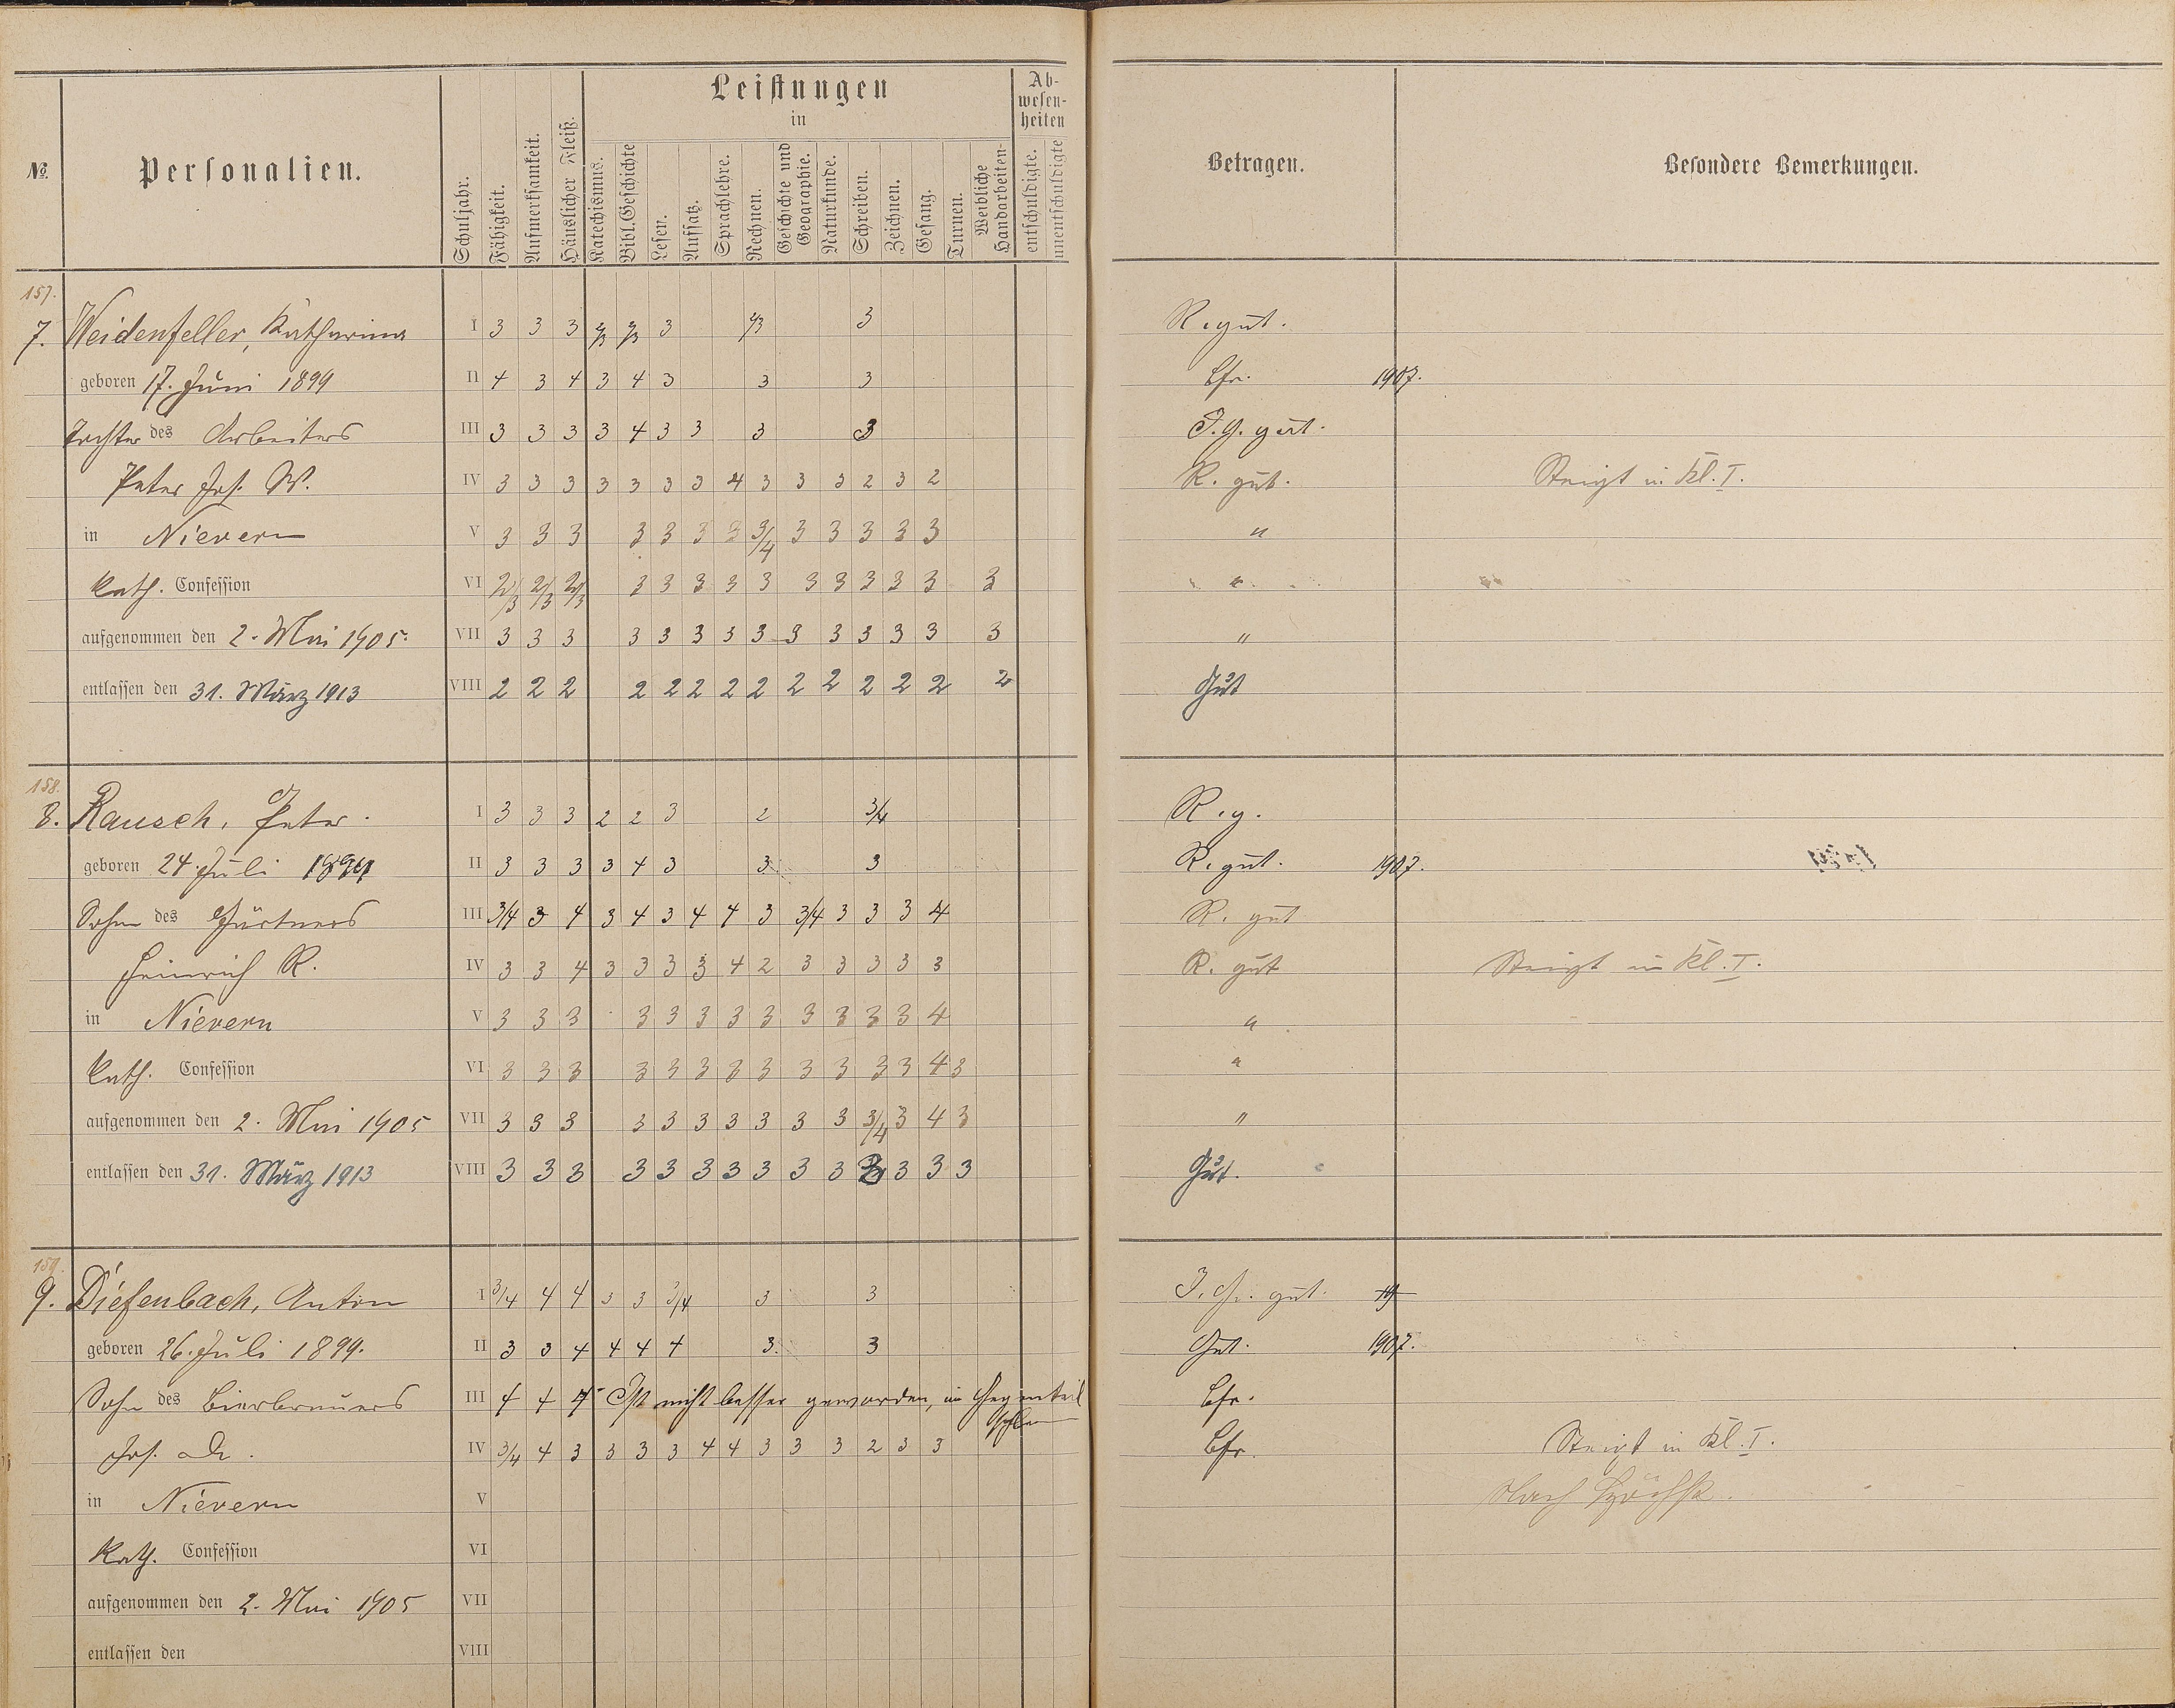 Leistungen
in
Ab-
wesen-
heiten
№. Personalien. Schuljahr. Fähigkeit. Aufmerksamkeit. Häuslicher Fleiß. Katechismus. Bibl. Geschichte Lesen. Aufsatz. Sprachlehre. Rechnen. Geschichte und Geographie. Naturkunde. Schreiben. Zeichnen. Gesang. Turnen. Weibliche Handarbeiten. entschuldigte. unentschuldigte Betragen. Besondere Bemerkungen.
157.
7. Weidenfeller, Katharina I 3 3 3 3 3 R. gut.
geboren 17. Juni 1899 II 4 3 4 3 4 3 3 3 1907.
Tochter des Arbeiters III 3 3 3 3 4 3 3 3 3 gut.
Peter Jos. W. IV 3 3 3 3 3 3 3 4 3 3 3 2 3 2 R. gut. Steigt in Kl. I.
in Nievern V 3 3 3 3 3 3 3 3/4 3 3 3 3 3 "
kath. Confession VI 2/3 2/3 2/3 3 3 3 3 3 3 3 3 3 3 3 "
aufgenommen den 2. Mai 1905. VII 3 3 3 3 3 3 3 3 3 3 3 3 3 3 "
entlassen den 31. März 1913 VIII 2 2 2 2 2 2 2 2 2 2 2 2 2 2 Gut
158.
8. Rausch, Peter. I 3 3 3 2 2 3 2 3/4 R. g.
geboren 24. Juli 1899 II 3 3 3 3 4 3 3 3 R. gut. 1907.
Sohn des Gärtners III 3/4 3 4 3 4 3 4 4 3 3/4 3 3 3 4 R. gut
Heinrich R. IV 3 3 4 3 3 3 3 4 2 3 3 3 3 3 R. gut Steigt in Kl. I.
in Nievern V 3 3 3 3 3 3 3 3 3 3 3 3 4 "
kath. Confession VI 3 3 3 3 3 3 3 3 3 3 3 3 4 3 "
aufgenommen den 2. Mai 1905 VII 3 3 3 3 3 3 3 3 3 3 3/4 3 4 3 "
entlassen den 31. März 1913 VIII 3 3 3 3 3 3 3 3 3 3 3 3 3 3 Gut.
159.
9. Diefenbach, Anton I 3/4 4 4 3 3 3/4 3 3 gut. 19
geboren 26. Juli 1899. II 3 3 4 4 4 4 3 3 Gut. 1907.
Sohn des Bierbrauers III 4 4 4 Ist nicht besser geworden, im Gegenteil
Jos. D. IV 3/4 4 3 3 3 3 4 4 3 3 3 2 3 3 Steigt in Kl. I.
in Nievern V Nach Höchst.
Kath. Confession VI
aufgenommen den 2. Mai 1905 VII
entlassen den VIII